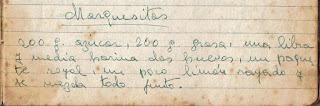 Marquesitas
200 g. azucar, 200 g. grasa, una libra
y media harina dos huevos, un paque
te royal, un poco limón rayado y
se mezcla todo junto.